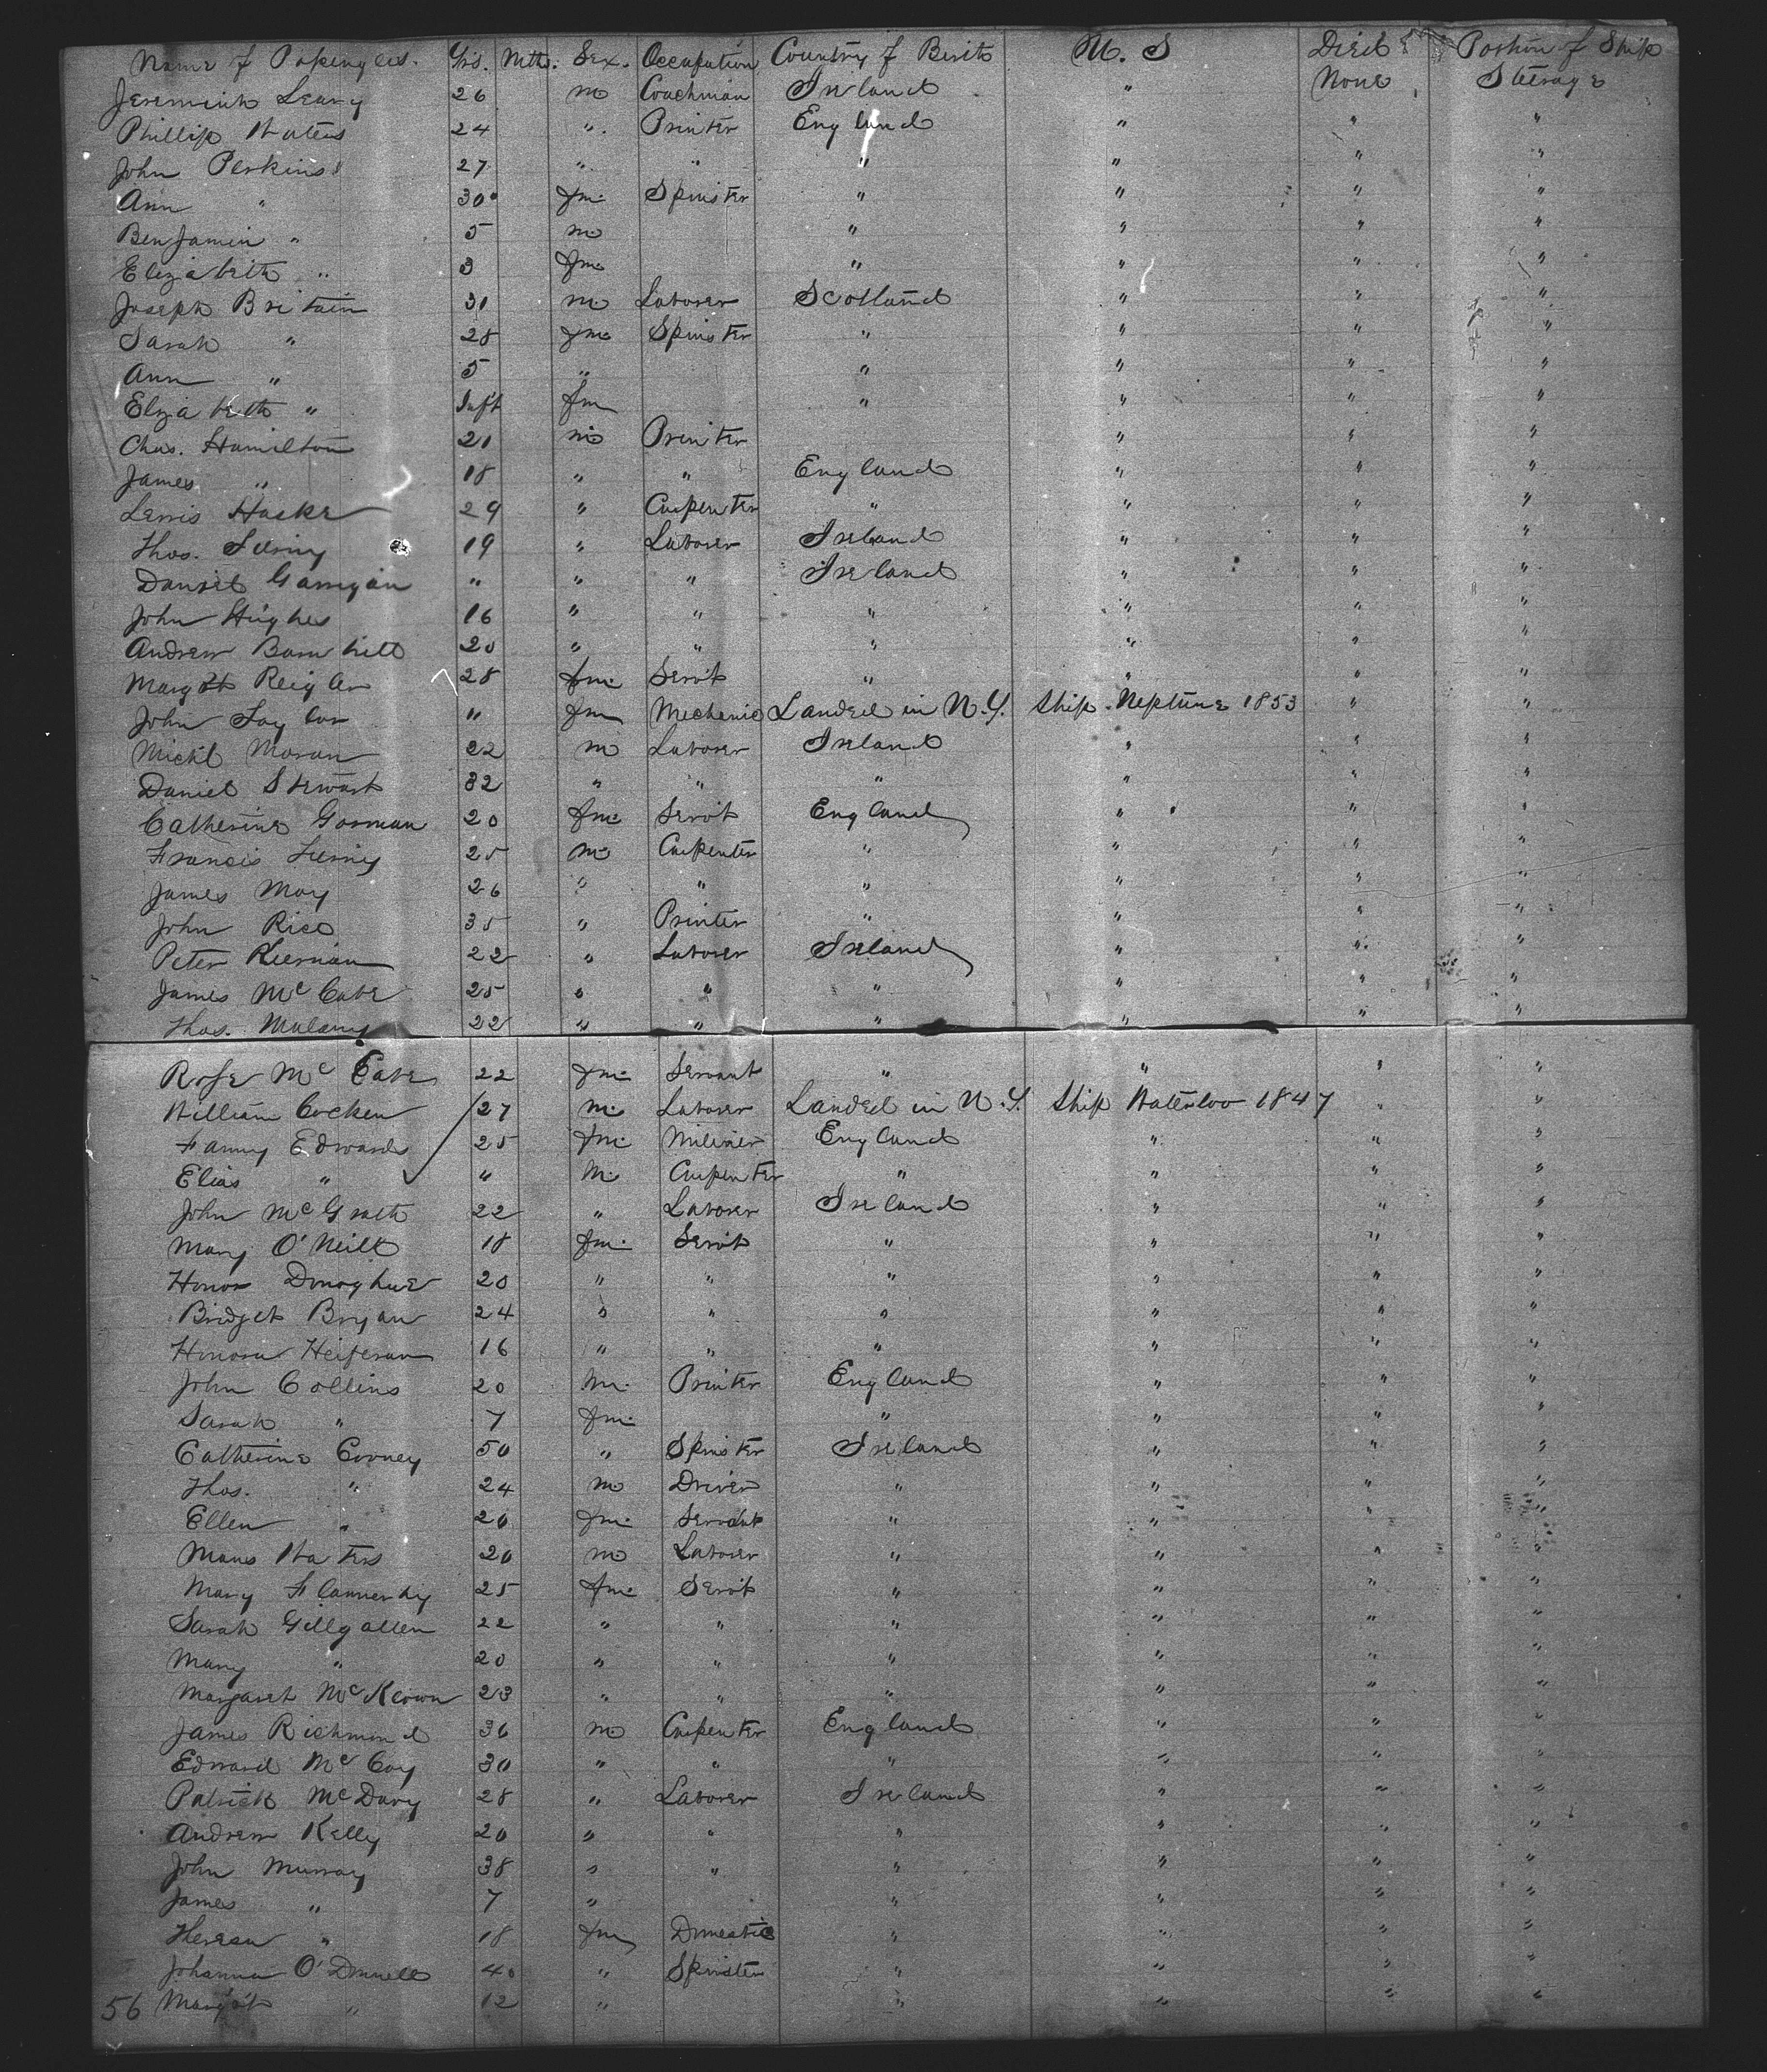 Name of Passengers. Yrs. Mths. Sex. Occupation Country of Birth U. S Died Portion of Ship
Jeremiah Leary 26 m Coachman Ireland " None Steerage
Phillip Waters 24 " Printer England " " "
John Perkins 27 " " " " " "
Ann " 30 fm Spinster " " " "
Benjamin " 5 m " " " "
Elizabeth " 3 fm " " " "
Joseph Britain 31 m Laborer Scotland " " "
Sarah " 28 fm Spinster " " " "
Ann " 5 " " " " "
Elizabeth " Inft fm " " " "
Chas. Hamilton 21 m Printer " " "
James " 18 " " England " " "
Lewis Hacke 29 " Carpenter " " " "
Thos. 19 " Laborer Ireland " " "
Daniel Garrigan " " " Ireland " " "
John Hughes 16 " " " " " "
Andrew Barnhill 20 " " " " " "
Margt Reigler 28 fm Servt " " " "
John Taylor " fm Mechanic Landed in N.Y. Ship Neptune 1853 " "
Michl Moran 22 m Laborer Ireland " " "
Daniel Stewart 32 " " " " " "
Catherine Gorman 20 fm Servt England " " "
Francis 25 m Carpenter " " " "
James May 26 " " " " " "
John Rice 35 " Printer " " " "
Peter Kiernan 22 " Laborer Ireland " " "
James McCabe 25 " " " " " "
Thos. Mulany 22 " " " " " "
Rose McCabe 22 fm Servant " " " "
William Cocken 27 m Laborer Landed in N.Y. Ship Waterloo 1847 " "
Fanny Edwards 25 fm Milinier England " " "
Elias " " m Carpenter " " " "
John McGrath 22 " Laborer Ireland " " "
Mary O'Neill 18 fm Servt " " " "
Honor Donoghue 20 " " " " " "
Bridget Bryan 24 " " " " " "
Honora Heiferan 16 " " " " " "
John Collins 20 m Printer England " " "
Sarah " 7 fm " " " "
Catherine Cooney 50 " Spinster Ireland " " "
Thos. " 24 m Driver " " " "
Ellen " 20 fm Servant " " " "
Waters 20 m Laborer " " " "
Mary Flannerhy 25 fm Servt " " " "
Sarah Gillgallen 22 " " " " " "
Mary " 20 " " " " " "
Margaret McKeown 23 " " " " " "
James Richmond 36 m Carpenter England " " "
Edward McCoy 30 " " " " " "
Patrick McDavy 28 " Laborer Ireland " " "
Andrew Kelly 20 " " " " " "
John Murray 38 " " " " " "
James " 7 " " " " "
Theresa " 18 fm Domestic " " " "
Johanna O'Donnell 40 " Spinster " " " "
56 Margt " 12 " " " " "